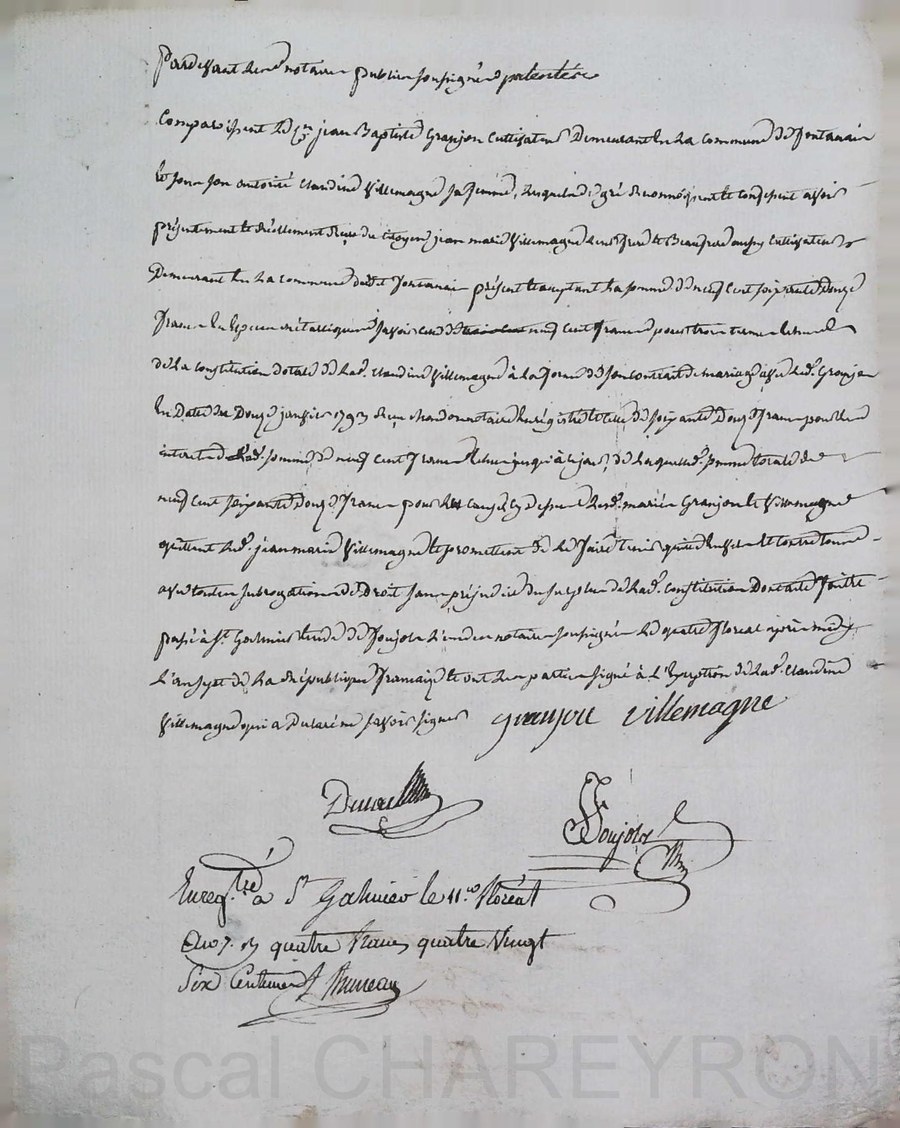 Pardevant les notaires publics soussignés patentés
Comparoissent le Cn jean Baptiste Granjon Cultivateur Demeurant en la commune de fontanais
et sous son autorité Claudine Villemagne sa femme, lesquels de gré reconnoissent et confessent avoir
présentement et réellement reçu du Citoyen jean marie Villemagne leur frere et Beaufrere aussy Cultivateur
Demeurant en la commune dudit fontanais présent et acceptant la somme de neuf cent soixante Douze
francs en Especes métalliques savoir celle de neuf cent francs pour trois termes echus
de la Constitution dotale de lade. Claudine Villemagne à la forme de son Contrat de mariage avec led. Granjon
En Date du Douze janvier 1793 reçu notaire Enrégistré et celle de soixante Douze francs pour les
interets de lade. somme de neuf cent francs echus jusqu'à ce jour, de laquelle somme totale de
neuf cent soixante Douze francs pour les causes cy dessus lesd. mariés Granjon et Villemagne
quittent led. jean marie Villemagne et promettent de le faire tenir quitte Envers et contre tous
avec toutes subrogations de Droit sans préjudice du surplus de lade. Constitution Dont acte fait et
passé à St. Galmier Etude de Poujols l'un des notaires soussignés le quatre floreal après midy
l'an sept de la République française et ont les parties signé à l'Exception de lade. Claudine
Villemagne qui a Declaré ne savoir signer granjon villemagne
Poujols
Enregtré à St Galmier le 11. floréal
an 7. R quatre francs quatre Vingt
Six Centimes
Pascal CHAREYRON